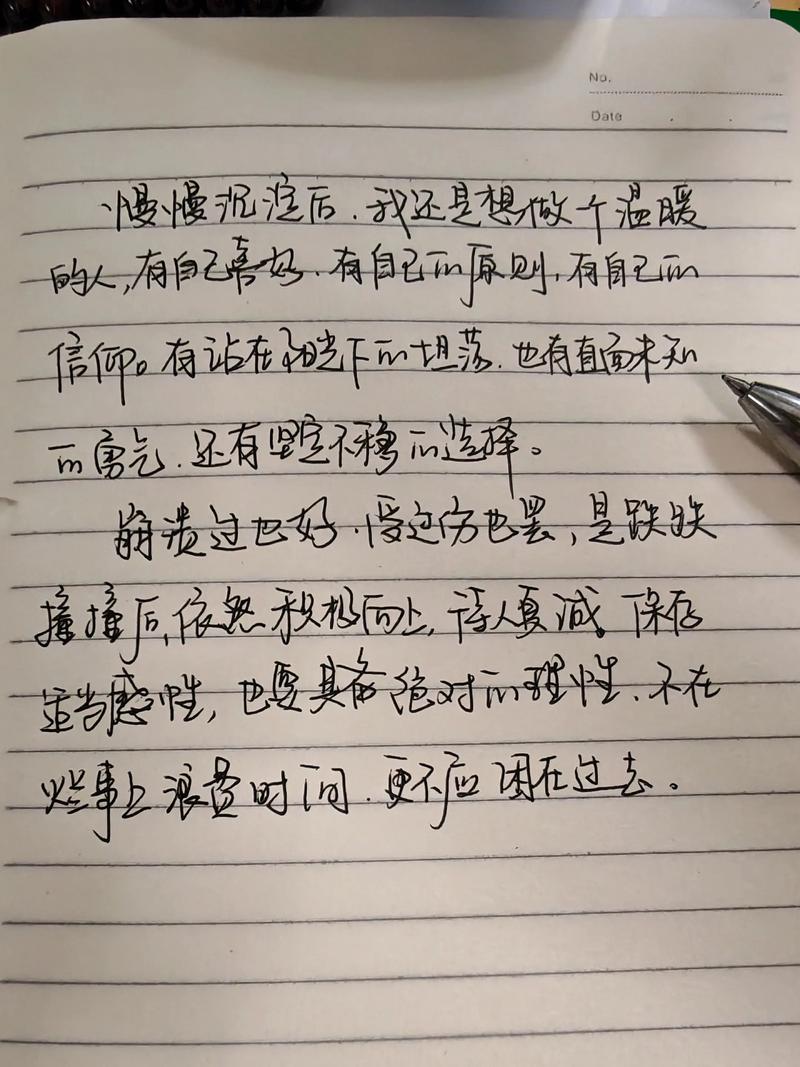 No.
Date
慢慢沉淀后，我还是想做个温暖
的人，有自己喜好，有自己的原则，有自己的
信仰。有站在阳光下的坦荡，也有直面未知
的勇气，还有坚定不移的选择。
崩溃过也好，受过伤也罢，是跌跌
撞撞后，依然积极向上，待人真诚。保存
适当感性，也要具备绝对的理性，不在
烂事上浪费时间，更不应困在过去。